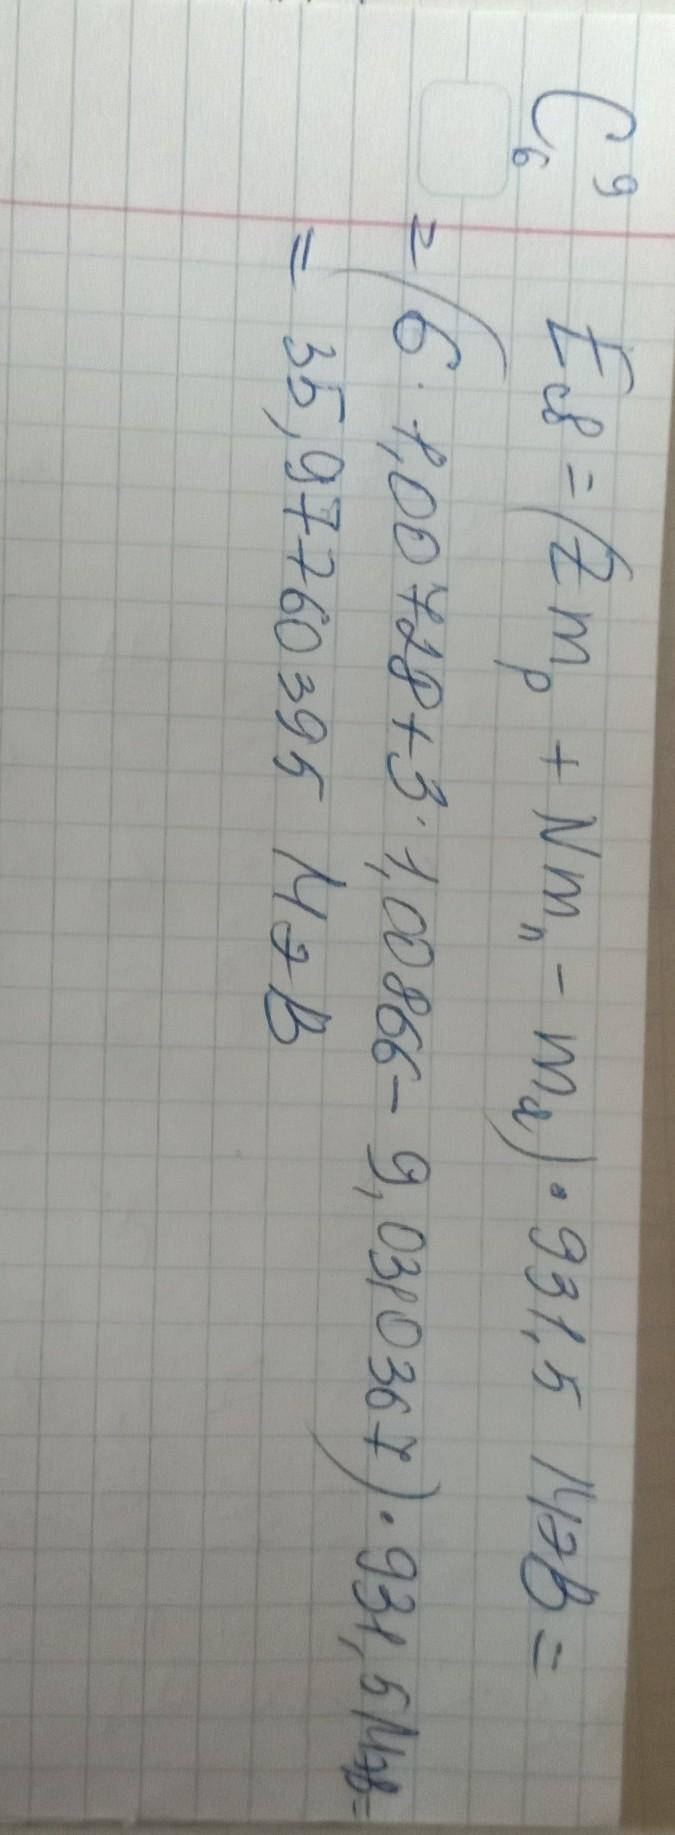 C₆⁹ Eсв = (Zmₚ + Nmₙ - mя) · 931,5 МэВ =
= (6 · 1,00728 + 3 · 1,00866 - 9,0310367) · 931,5 МэВ =
= 35,97760395 МэВ